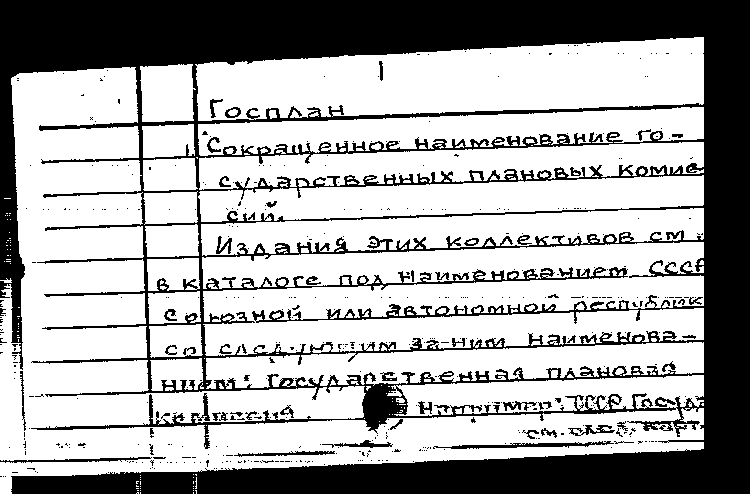 Госплан
1. Сокращенное наименование го-
сударственных плановых комис-
сий.
Издания этих коллективов см.
в каталоге под наименованием СССР
союзной или автономной республик
со следующим за ним наименова-
нием: Государственная плановая
комиссия. Например: СССР. Госуда
см. след. карт.